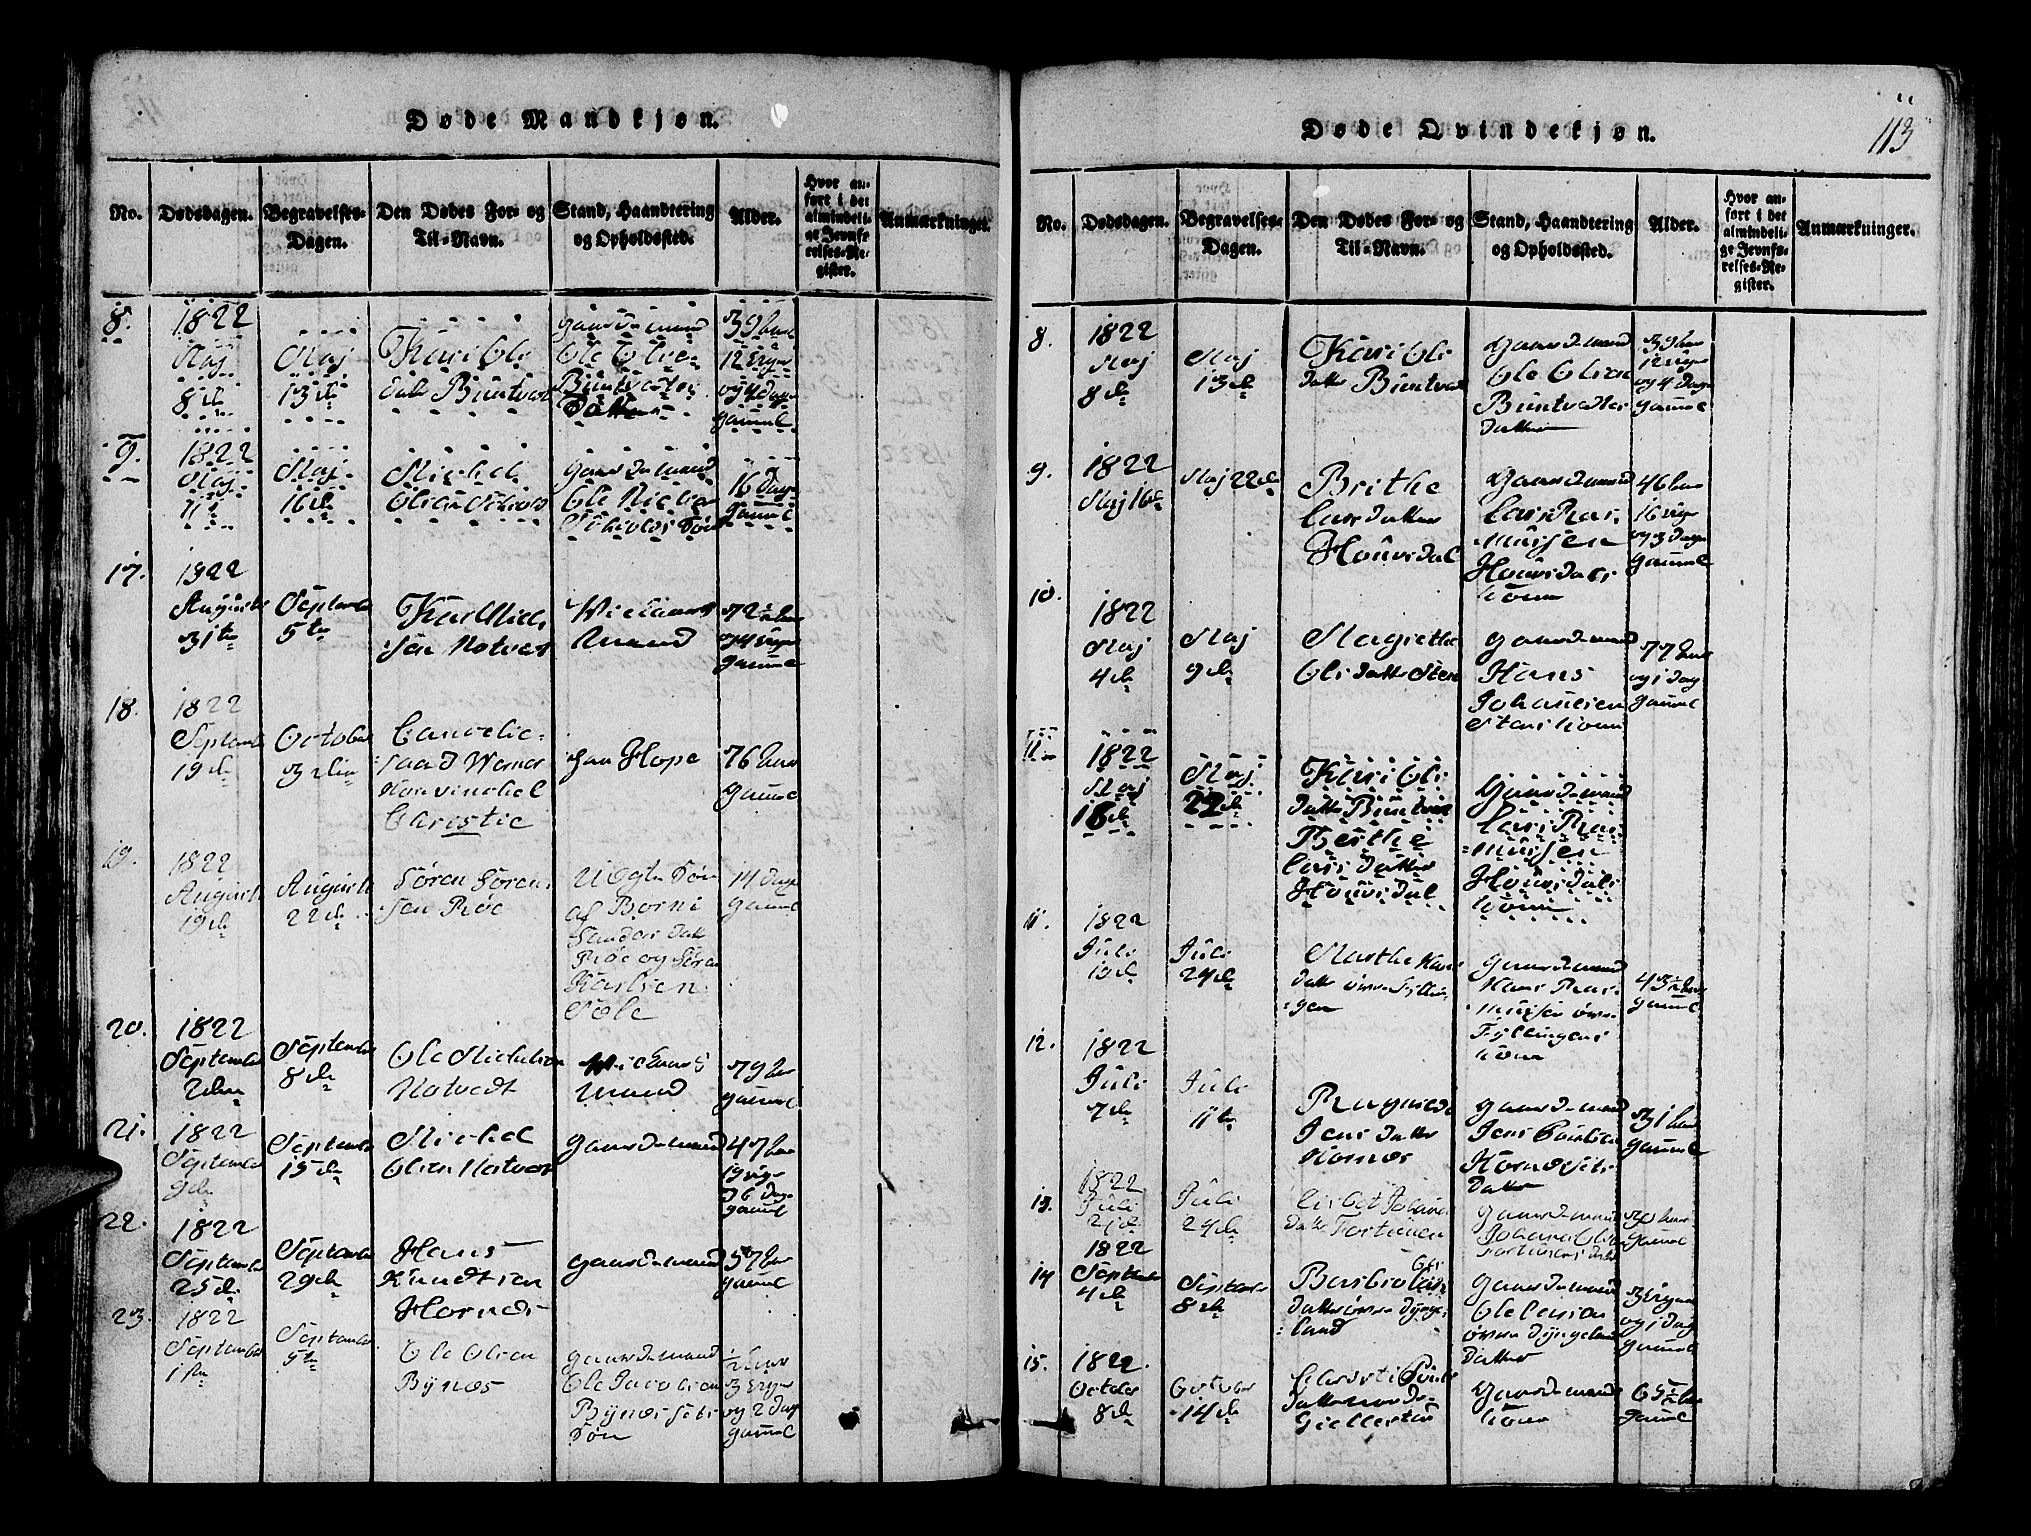 Døde Mandkjøn.
No.
Dødsdagen.
Begravelses-
Dagen.
Den Dødes For- og
Til-Navn.
Stand, Haandtering
og Opholdssted.
Alder.
Hvor an-
ført i det
almindeli-
ge Jevnfø-
relses-Re-
gister.
Anmærkninger.
8.
1822
Maj
8de
Maj
13de
Kari Ols
datter
gaardemand
Ole Olsen
Datter
12 Uger
og 4 Dage
gammel
9.
1822
Maj
11te
Maj
16de
Michel
Olsen
gaardemand
Ole
Søn
16 Dage
gammel
17.
1822
Augusti
31te
September
5te
Karl Niels
sen Notvedt
mand
72 Aar
og 4 Uger
gammel
18.
1822
September
19de
October
3die
Cancelie-
raad Werner
Hosvinckel
Christie
paa Hope
76 Aar
gammel
19.
1822
Augusti
19de
Augusti
22de
Sören Sören-
sen Röe
Uægte Sön
af Borni
Sanders Datt
Röe og Sören
Karlsen
Söle
14 Dage
gammel
20.
1822
September
2den
September
8de
Ole Michelsen
Notvedt
mand
79 Aar
gammel
21.
1822
September
9de
September
15de
Michel
Olsen Notvedt
gaardemand
47 Aar
19 Uger
6 Dage
gammel
22.
1822
September
25de
September
29de
Hans
Knudtsen
Hornæs
gaardemand
57 Aar
gammel
23.
1822
September
1ste
September
5te
Ole Olsen
Bynæs
gaardemand
Ole Jacobsen
Bynæsets
Sön
1/2 Aar
3 Uger
og 2 Dage
gammel
Døde Qvindekjøn.
113
No.
Dødsdagen.
Begravelses-
Dagen.
Den Dødes For- og
Til-Navn.
Stand, Haandtering
og Opholdssted.
Alder.
Hvor an-
ført i det
almindeli-
ge Jevnfø-
relses-Re-
gister.
Anmærkninger.
8.
1822
Maj
8de
Maj
13de
Kari Ols
datter
gaardemand
Ole Olsen
datter
12 Uger
og 4 Dage
gammel
9.
1822
Maj 16de
Maj 22de
Brithe
Lars datter
Hougsdal
gaardemand
Lars Ras-
mussen
Hougsdals
kone
46 Aar
16 Uger
og 3 Dage
gammel
10.
1822
Maj
4de
Maj
9de
Magrethe
Ols datter
gaardemand
Hans
Johannesen
kone
77 Aar
og 1 Dag
gammel
11.
1822
Maj
16de
Maj
22de
Kari Ols
datter
Berthe
Lars datter
Hougsdal
gaardemand
Lars Ras-
mussen
Hougsdals
kone
11.
1822
Juli
19de
Juli
24de
Marthe Hans
datter övre Fyllin-
gen
gaardemand
Hans Ras-
mussen övre
Fyllingens
kone
43 Aar
gammel
12.
1822
Juli
7de
Juli
11te
Ragnilde
Jens datter
Hornæs
gaardemand
Jens Poulsen
Hornæsets
datter
31 Aar
gammel
13.
1822
Juli
21de
Juli
24de
Lisbet Johannes
datter Fortunen
gaardemand
Johannes Olsen
Fortunens datter
gammel
14
1822
September
4de
September
8de
Barbro Ols
datter övre Dynge-
land
gaardemand
Ole Larsen
övre Dyngelands
datter
3 Uger
og 1 Dag
gammel
15.
1822.
October
8de
October
14de
datter nordre
Giellestad
gaardemands
kone
65 Aar
gammel